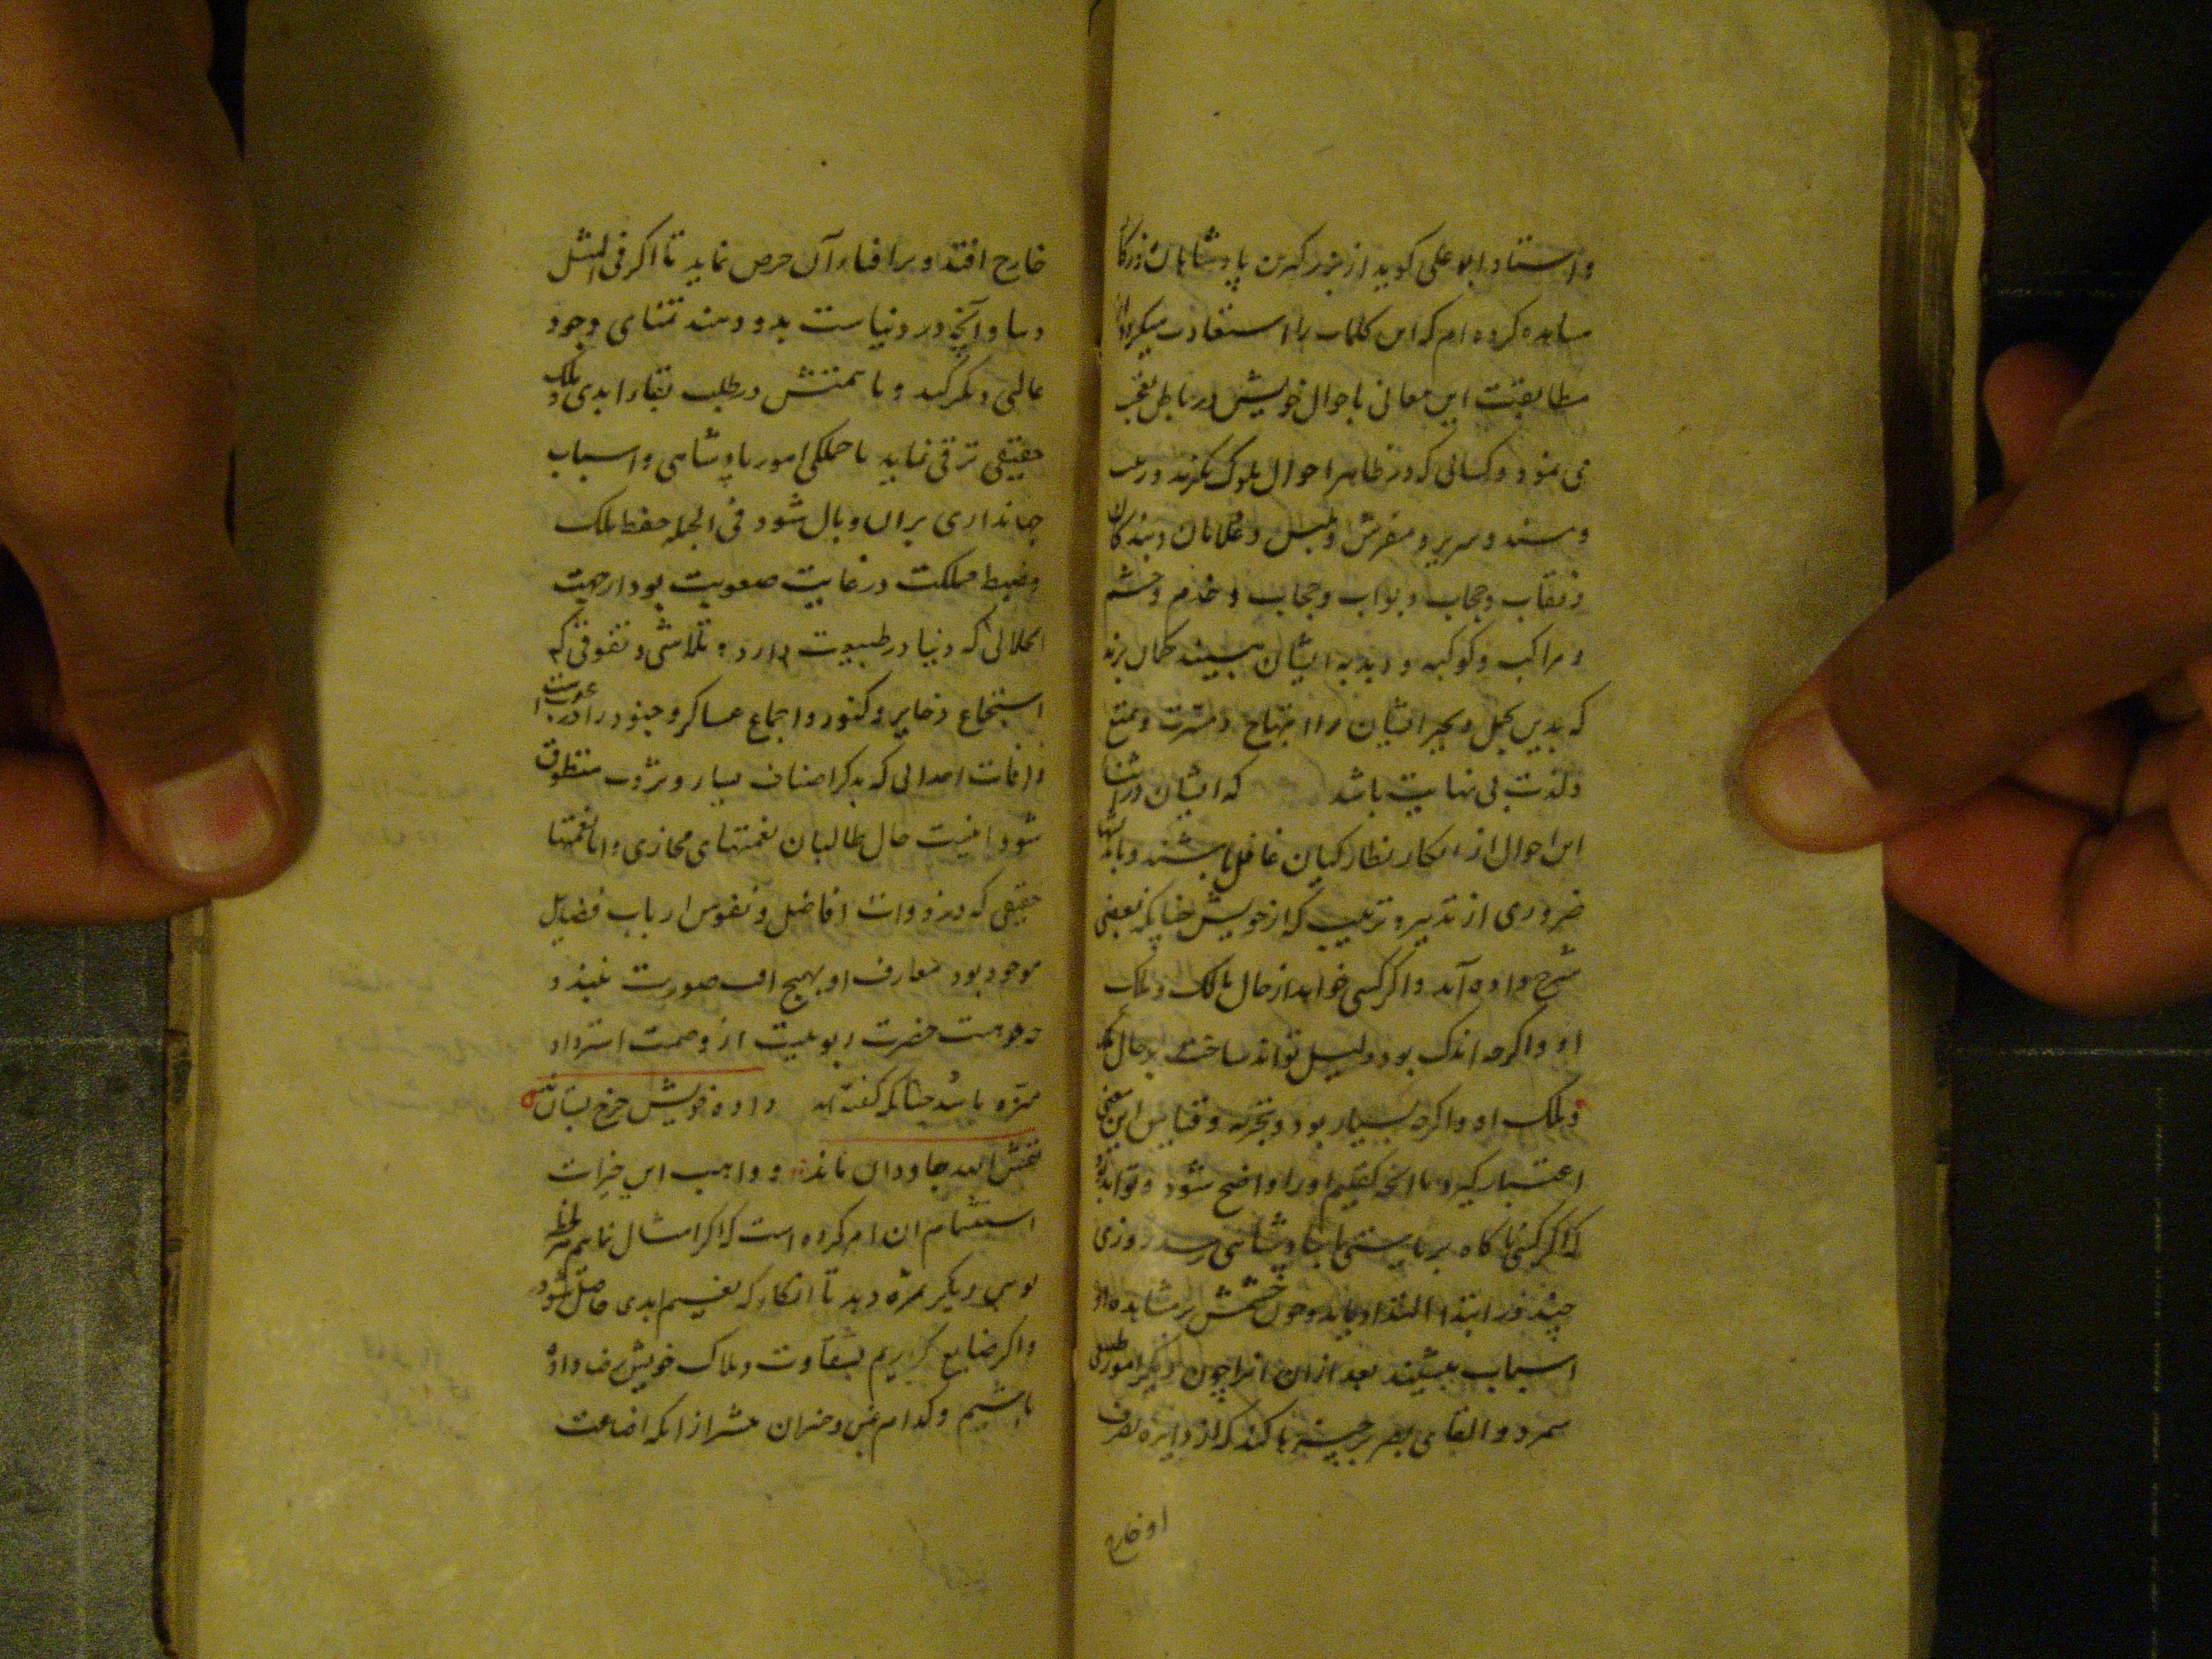 واستاد ابو علی کوید از بزرکترین پادشاهان روزکا
مشاهده کرده ام که این کلمات را استعادت میکرد واز
مطابقت این معانی با حوال خویش در باطل تعجب
می نمود و کسانی که در ظاهر احوال ملوک نکرند و زینت
ومسند و سریر و مفرش و ملبس و غلامان و بندکان
ونقاب وحجاب و بواب وحجاب و خدم وحشم
ومراکب و کوکبه و دبدبه ایشان ببینند کمان برند
که بدین تجمل و تجبر ایشان را ابتهاج ومسرت وتمتع
ولذت بی نهایت باشد که ایشان در اثنا
این احوال از افکار نظارکیان غافل باشند و باندیشها
ضروری از تدبیر و ترتیب کار خویش چنانکه بعضی
شرح داده آمد و اکر کسی خواهد از حال مالک و ملک
او واکرچه اندک بود دلیل تواند ساخت بر حال ملک
وملک او واکرچه بسیار بود وتجربه وقیاس این معنی
اعتبار کیرد تا آنچه کفتیم اورا واضح شود و تواند بود
که اکر کسی ناکاه بریاستی یا پادشاهی رسد روزی
چند در ابتدا التذاذ یابد وچون چشمش بر مشاهده آن
اسباب بنشیند بعد از ان انرا چون دیکر امور طبیعی
شمرد و القای بصر بر چیزها کند که از دایره تصرف
او خارج
خارج افتد و بر اقتناء آن حرص نماید تا اکر فی المثل
دنیا و آنچه در دنیاست بدو دهند تمنای وجود
عالمی دیکر کند و یا همتش در طلب بقاء ابدی و ملک
حقیقی ترقی نماید تا جملکی امور پادشاهی و اسباب
جهانداری بر ان وبال شود فی الجمله حفظ ملک
وضبط مملکت در غایت صعوبت بود از جهت
انحلالی که دنیا در طبیعت دارد و تلاشی و تفرقی که
استجماع ذخایر و کنوز واجماع عساکر و جنود را در عقبست
وافات احداثی که بذکر اصناف یسار و ثروت متطرق
شود اینست حال طالبان نعمتهای مجازی واما نعمتها
حقیقی که در ذوات افاضل و نفوس ارباب فضایل
موجود بود مفارقت او بهیچ صورت نبندد
چه موهبت حضرت ربوبیت از وصمت استرداد
منزه باشد چنانکه کفته اند داده خویش چرخ بستاند
نقش الله جاودان ماند و واهب این خیرات
استثمار ان امر کرده است که اکر امتثال نماییم هر لحظه
نوعی دیکر ثمره دهد تا انکاه که نعیم ابدی حاصل شود
واکر ضایع کردانیم بشقاوت و هلاک خویش رضا داده
باشیم و کدام غبن و خسران بیشتر از انکه اضاعت